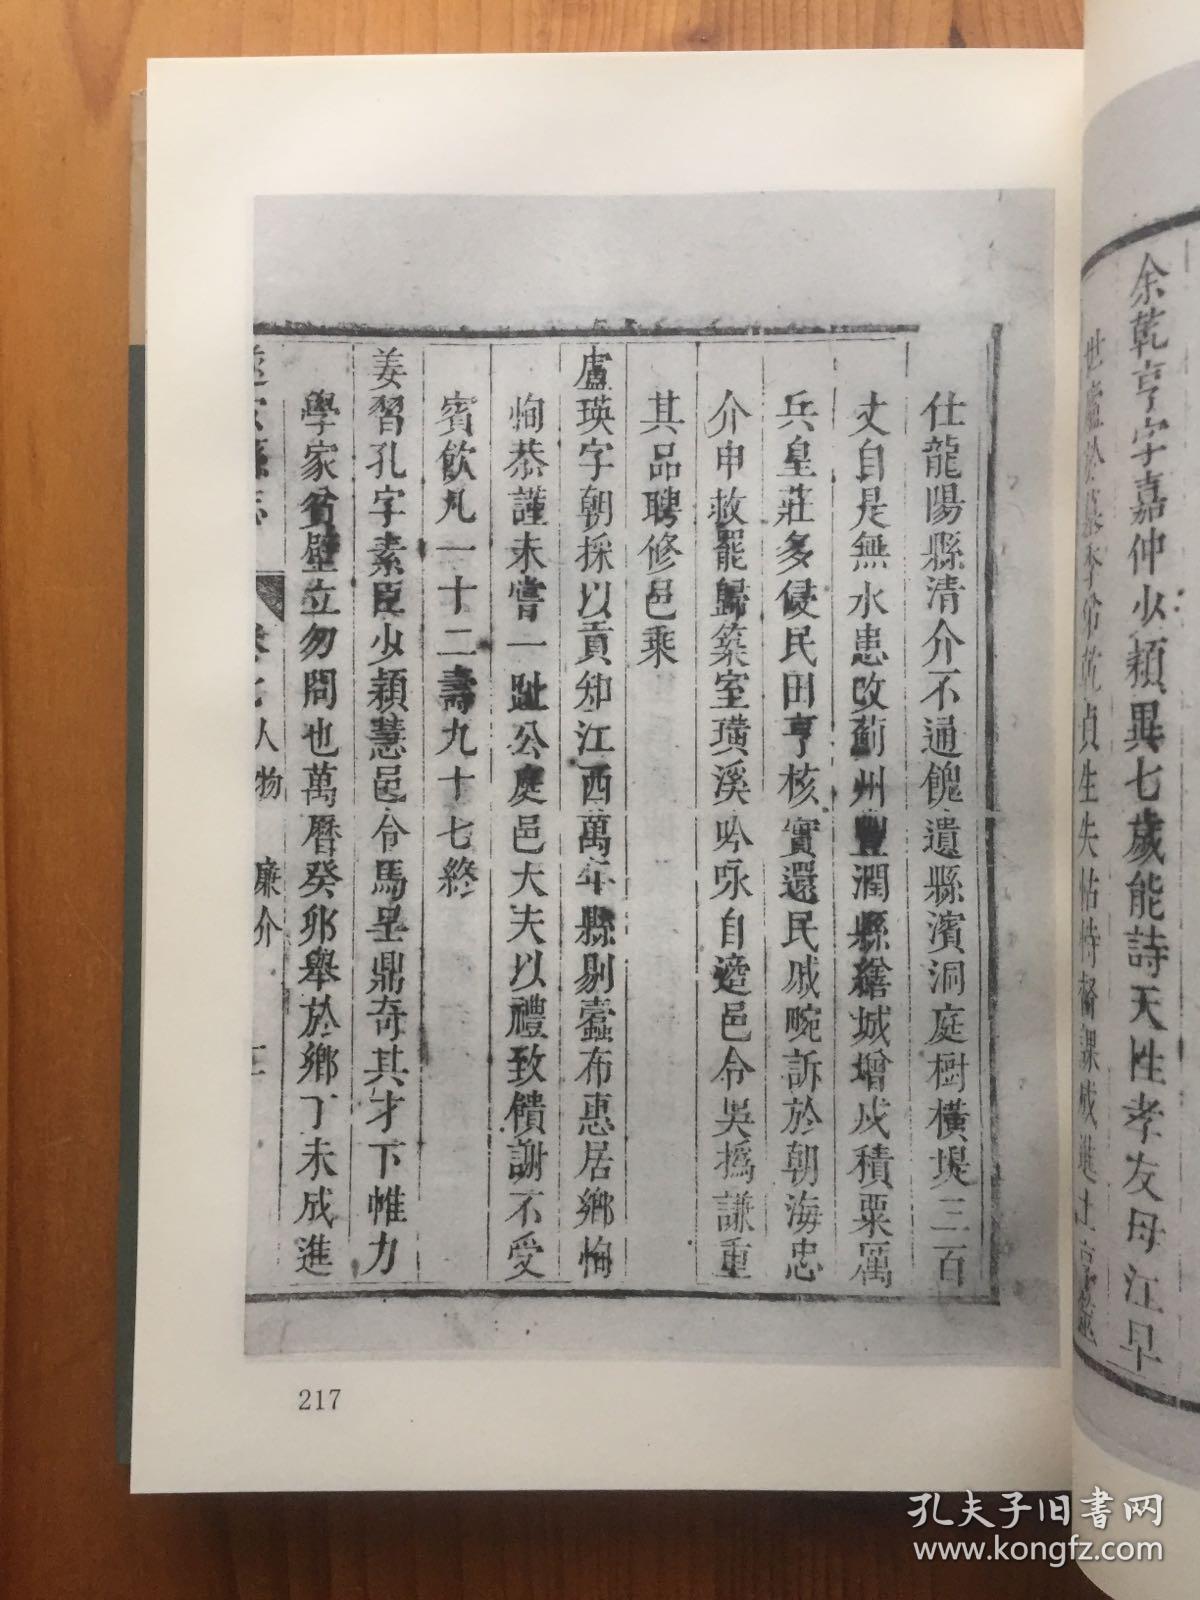 余乾亨字嘉仲少穎異七歲能詩天性孝友母江早
仕龍陽縣清介不通餽遺縣濱洞庭樹橫堤三百
丈自是無水患改薊州豐潤縣繕城增戍積粟厲
兵皇莊多侵民田亨核實還民戚畹訴於朝海忠
介申救罷歸築室璜溪吟咏自適邑令吳撝謙重
其品聘修邑乘
盧瑛字朝採以貢知江西萬年縣剔蠹布惠居鄉恂
恂恭謹未嘗一趾公庭邑大夫以禮致饋謝不受
賓飲凡一十二壽九十七終
姜習孔字素臣少穎慧邑令馬呈鼎奇其才下帷力
學家貧壁立勿問也萬曆癸卯舉於鄉丁未成進
人物 廉介
217
孔夫子旧书网
www.kongfz.com